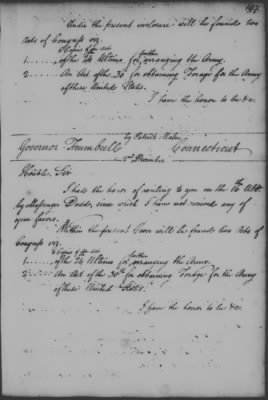 167.
Under the present enclosure will be found two
Acts of Congress viz.
2 Copies of an act
1 of the 24 Ultimo for further arranging the Army.
2 An Act of the 30th for obtaining Forage for the Army
of these United States.
I have the honor to be &c.
by Patrick Maher
Governor Trumbull Connecticut
3rd December
Honble. Sir
I had the honor of writing to you on the 16th Ulto.
by Messenger Dodd, since which I have not received any of
your favors.
Within the present Cover will be found two Acts of
Congress viz.
2 Copies of an act
1 of the 24 Ultimo for further arranging the Army.
2 An Act of the 30th for obtaining Forage for the Army
of these United States.
I have the honor to be &c.